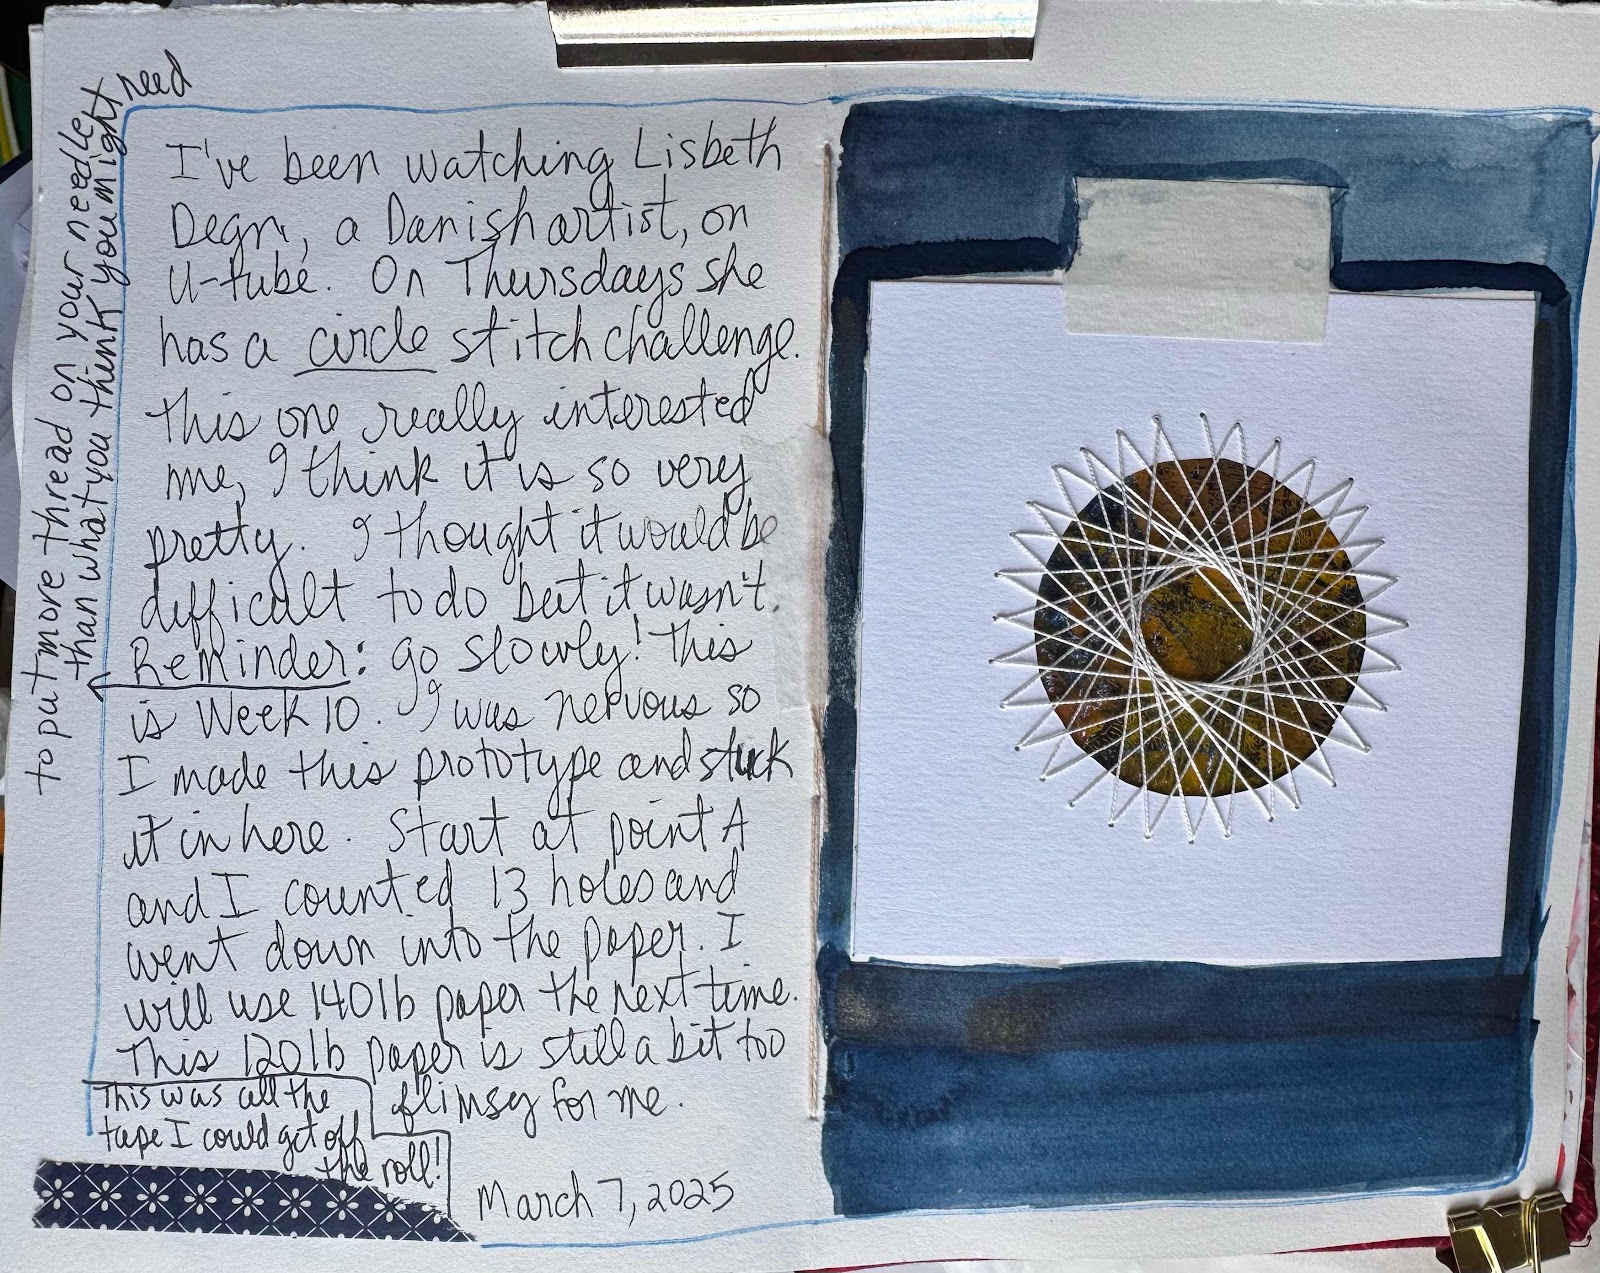 I've been watching Lisbeth
Degn, a Danish artist, on
U-tube. On Thursdays she
has a circle stitch challenge.
This one really interested
me, I think it is so very
pretty. I thought it would be
difficult to do but it wasn't.
Reminder: go slowly! This
is Week 10. I was nervous so
I made this prototype and stuck
it in here. Start at point A
and I counted 13 holes and
went down into the paper. I
will use 140lb paper the next time.
This 120lb paper is still a bit too
flimsy for me.
to put more thread on your needle
than what you think you might need
This was all the
tape I could get off
the roll!
March 7, 2025